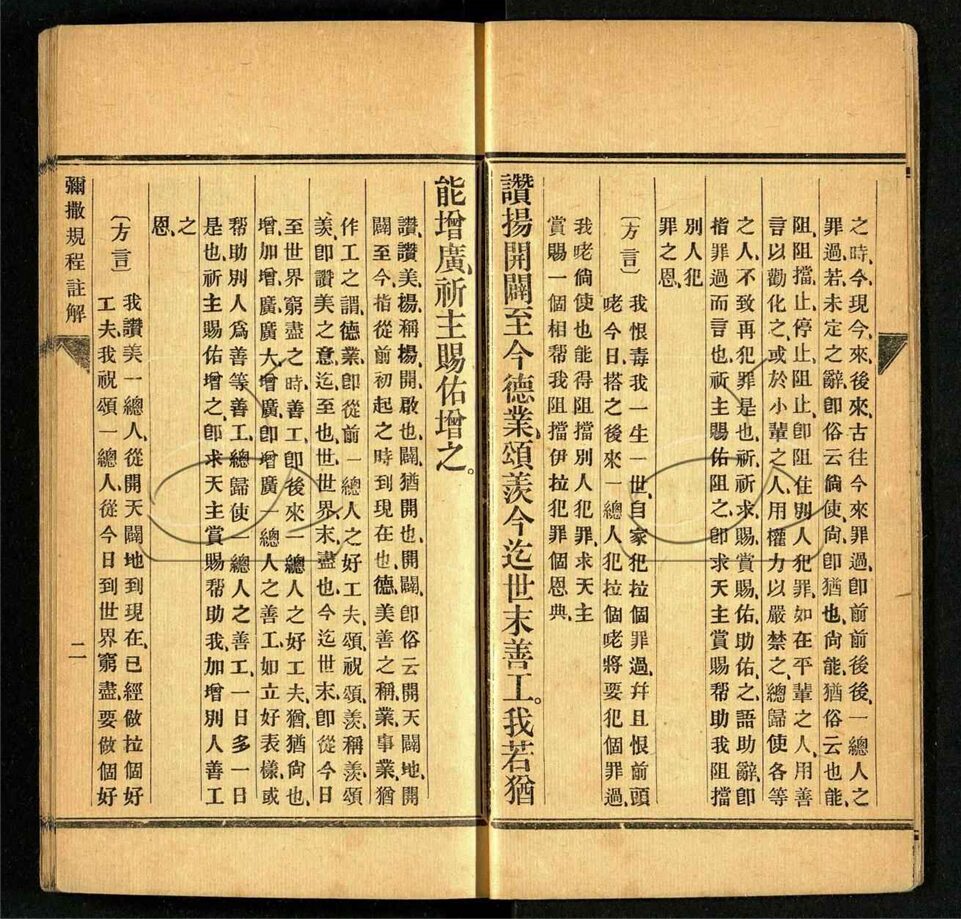 之時、今現今、來後來、古往今來罪過、卽前前後後、一總人之
罪過、若未定之辭、卽俗云倘使、尙卽猶也、尙能猶俗云也能、
阻阻擋、止停止、阻止、卽阻住別人犯罪、如在平輩之人、用善
言以勸化之、或於小輩之人、用權力以嚴禁之、總歸使各等
之人、不致再犯罪、是也、祈祈求、賜賞賜、佑助佑、之語助辭、卽
指罪過而言也、祈主賜佑阻之、卽求天主賞賜幫助我阻擋
別人犯
罪之恩、
〔方言〕我恨毒我一生一世、自家犯拉個罪過、幷且恨前頭
咾今日、搭之後來一總人犯拉個咾將要犯個罪過、
我咾倘使也能得阻擋別人犯罪、求天主
賞賜一個相帮我阻擋伊拉犯罪個恩典、
讚揚開闢至今德業、頌羨今迄世末善工。我若猶
能增廣、祈主賜佑增之。
讚、讚美、揚、稱揚、開、啟也、闢、猶開也、開闢、卽俗云開天闢地、開
闢至今、指從前初起之時到現在也、德、美善之稱、業、事業、猶
作工之謂、德業、卽從前一總人之好工夫、頌、祝頌、羨、稱羨、頌
羨、卽讚美之意、迄、至也、世、世界、末、盡也、今迄世末、卽從今日
至世界窮盡之時、善工、卽後來一總人之好工夫、猶、猶尙也、
增、加增、廣、廣大、增廣、卽增廣一總人之善工、如立好表樣、或
幫助別人爲善等、善工、總歸使一總人之善工、一日多一日
是也、祈主賜佑增之、卽求天主賞賜幫助我加增別人善工
之
恩、
〔方言〕我讚美一總人、從開天闢地到現在、已經做拉個好
工夫、我祝頌一總人、從今日到世界窮盡、要做個好
彌撒規程註解
二